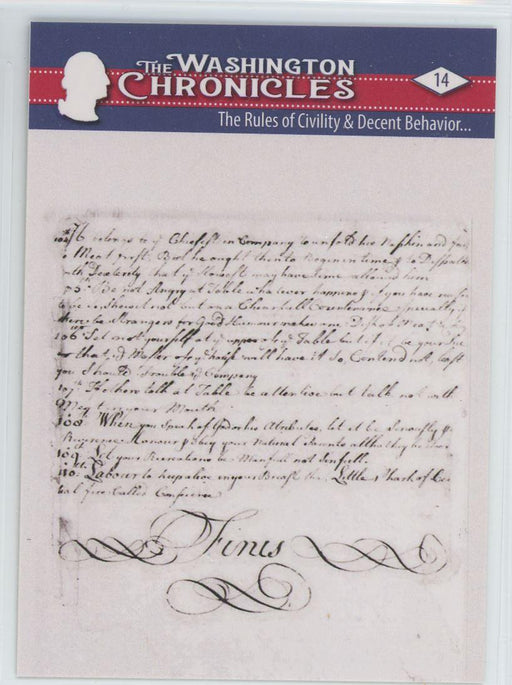 THE WASHINGTON
CHRONICLES
14
The Rules of Civility & Decent Behavior...
104th It belongs to ye Chiefest in Company to unfold his Napkin and
Meat first, But he ought then to Begin in time & to Dispatch
Dexterity that ye Slowest may have time allowed him
Be not Angry at Table whatever happens & if you have
to be so, Shew it not but on a Chearfull Countenance Especially if
there be Strangers for Good Humour makes one Dish of Meat
106th Set not yourself at ye upper of ye Table but if it be your Due
or that ye Master of ye house will have it So, Contend not, least
you Should Trouble ye Company
107th If others talk at Table be attentive but talk not with
Meat in your Mouth
108th When you Speak of God or his Atributes, let it be Seriously &
Reverence Honour & Obey your Natural Parents altho they be Poor
109th Let your Recreations be Manfull not Sinfull
110th Labour to keep alive in your Breast that Little Spark of
tial fire Called Conscience
Finis